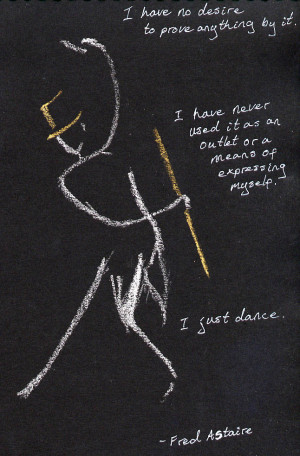 I have no desire
to prove anything by it.
I have never
used it as an
outlet or a
means of
expressing
myself.
I just dance.
- Fred Astaire